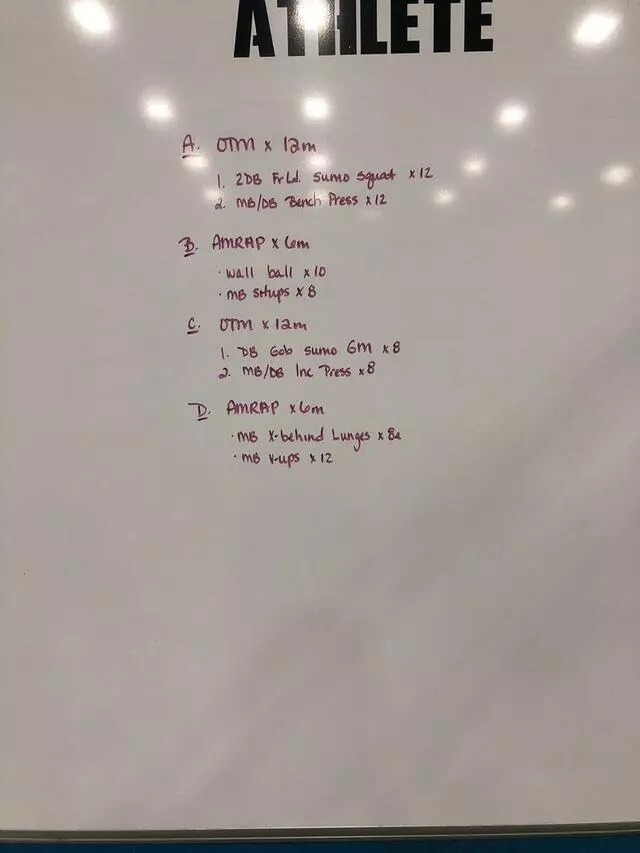 ATHLETE
A. OTM x 12m
1. 2DB Fr Ld. Sumo Squat x12
2. MB/DB Bench Press x12
B. AMRAP x 6m
· Wall ball x10
· MB Situps x 8
C. OTM x 12m
1. DB Gob Sumo GM x8
2. MB/DB Inc Press x8
D. AMRAP x 6m
· MB X-behind Lunges x 8e
· MB V-ups x 12